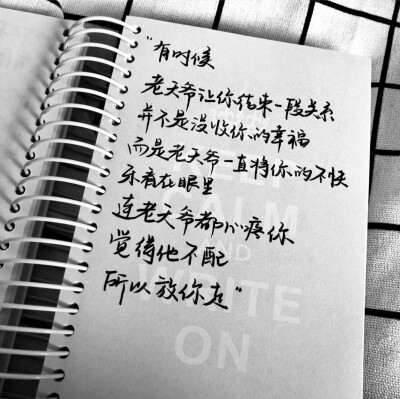 “有时候
老天爷让你结束一段关系
并不是没收你的幸福
而是老天爷一直将你的不快
乐看在眼里
连老天爷都心疼你
觉得他不配
所以放你走”
KEEP
CALM
AND
WRITE
ON